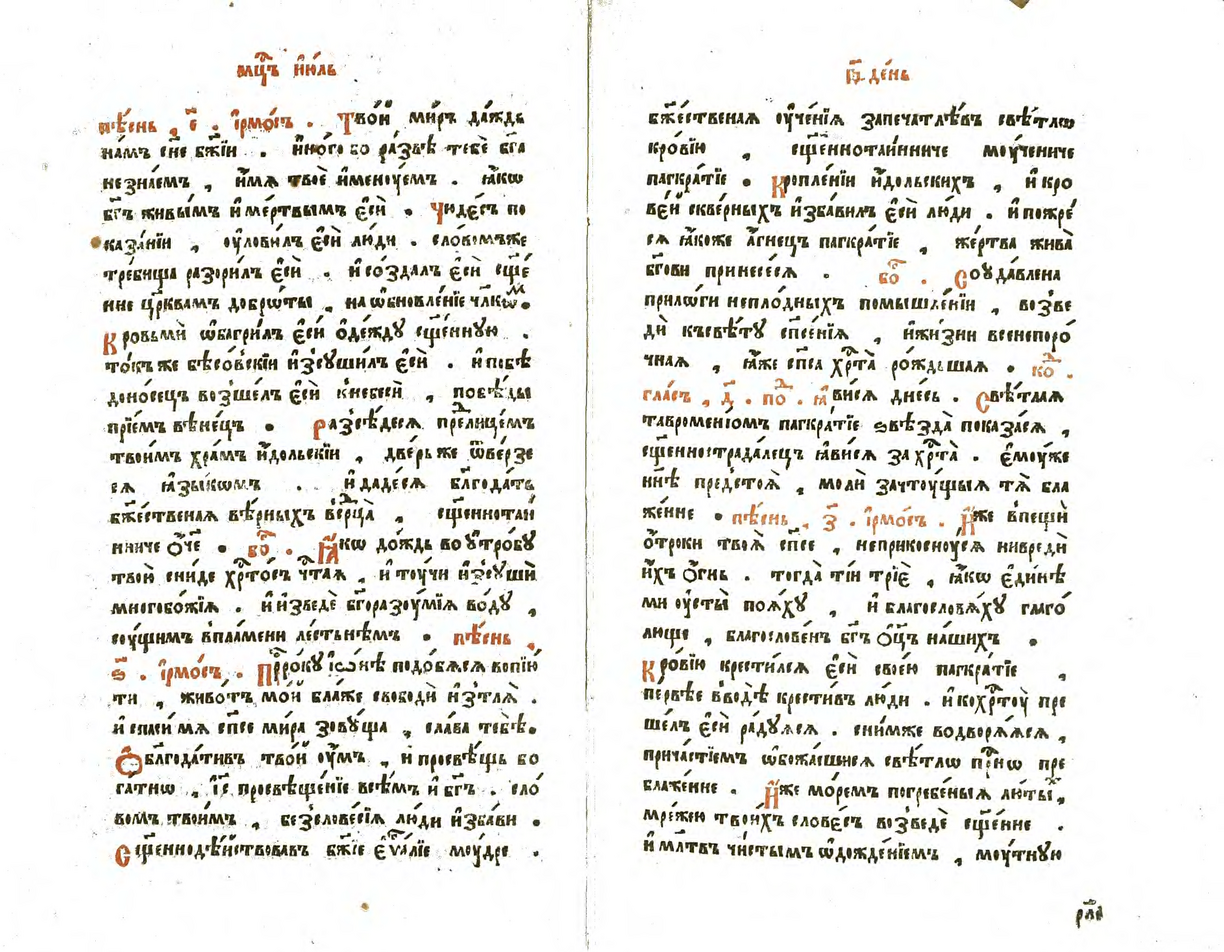 мц҇ъ і҆ю́ль
пѣ́снь , є҃ . і҆рмо́съ . Тво́й ми́ръ да́ждь
на́мъ сн҃е бж҃їи . и҆но́го бо ра́звѣ тебѐ бг҃а
незна́емъ , и҆́мѧ твоѐ и҆менꙋ́емъ . ꙗ҆́кѡ
бг҃ъ живы́мъ и҆ ме́ртвымъ є҆сѝ . Чюде́съ по
каза́нїи , оу҆лови́лъ є҆сѝ лю́ди . сло́вомъже
тре́бища разори́лъ є҆сѝ . и҆ со́здалъ є҆сѝ сщ҃е
нне цр҃квамъ добрѡ́ты , на ѡ҆бновле́нїе чл҃кѡⷨ.
Кровьмѝ ѡ҆багри́лъ є҆сѝ ѻ҆де́ждꙋ сщ҃е́ннꙋю .
то́къже бѣсо́вскїи и҆зсꙋши́лъ є҆сѝ . и҆ побѣ
доно́сецъ возше́лъ є҆сѝ к̾небесѝ , побѣ́ды
прїе́мъ вѣне́цъ . Разсѣ́десѧ преⷣлице́мъ
твои́мъ хра́мъ и҆́дольскїи , две́рьже ѿве́рзе
сѧ ꙗ҆зы́кѡмъ . и҆ даде́сѧ блг҃ода́ть
бж҃е́ственаѧ вѣ́рныхъ в̾срⷣца̀ , сщ҃еннотаи
нниче ѻ҆́ч҃е . боⷣ . Ꙗ҆́кѡ до́ждь во ᲂу҆тро́бꙋ
твою̀ сни́де хрⷭ҇то́съ чⷭ҇таѧ , и҆ тꙋ́чи и҆зсꙋшѝ
многобо́жїѧ . и҆ и҆зведѐ бг҃оразꙋ́мїѧ во́дꙋ ,
сꙋ́щимъ в̾пла́мени ле́стьнѣмъ . пѣ́снь ,
ѕ҃ . і҆рмо́съ . Прⷪ҇ро́кꙋ і҆ѡ́нѣ подо́бѧсѧ вопїю́
ти , живо́тъ мо́й бла́же свободѝ и҆зтлѧ̀ .
и҆ спаси́ мѧ сп҃се ми́ра зовꙋ́ща , сла́ва тебѣ̀.
Ѻ҆благода́тивъ тво́й оу҆́мъ , и҆ просвѣ́щь бо
га́тнѡ , і҆с҃ просвѣще́нїе всѣ́мъ и҆ бг҃ъ . сло́
вомъ твои́мъ , безслове́сїѧ лю́ди и҆зба́ви .
Сщ҃еннодѣ́йствовавъ бж҃їе є҆ѵⷢ҇а́лїе мꙋ́дре .
к҃в де́нь
бж҃е́ственаѧ оу҆че́нїѧ запечатлѣ́въ свѣ́тлѡ
кро́вїю , сщ҃еннотаи́нниче мꙋ́чениче
пагкра́тїе . Кропле́нїи и҆́дольскихъ , и҆ кро
ве́й скве́рныхъ и҆зба́вилъ є҆сѝ лю́ди . и҆ пожре́
сѧ ꙗ҆́коже а҆́гнецъ пагкра́тїе , же́ртва жива̀
бг҃ови принесе́сѧ . боⷣ . Соудавлена
прило́ги непло́дныхъ помышле́нїи , возве
дѝ къ свѣ́тꙋ сп҃се́нїѧ , и҆ жи́зни всенепоро́
чнаѧ , ꙗ҆́же сп҃са хрⷭ҇та̀ ро́ждьшаѧ . коⷣ .
гла́съ , д҃ . поⷣ . ꙗ҆ви́сѧ дне́сь . Свѣ́тлаѧ
тавромені́ѡмъ пагкра́тїе ѕвѣзда̀ показа́сѧ ,
сщ҃енностра́далецъ ꙗ҆ви́сѧ за хрⷭ҇та̀ . є҆мꙋ́же
нн҃ѣ предстоѧ̀ , молѝ зачтꙋ́щыѧ тѧ̀ бла
же́нне . пѣ́снь , з҃ . і҆рмо́съ . И҆́же в̾пещѝ
ѻ҆́троки твоѧ̀ сп҃се , неприкоснꙋ́сѧ нивредѝ
и҆́хъ ѻ҆́гнь . тогда̀ ті́и трїѐ , ꙗ҆́кѡ є҆ди́нѣ
ми оу҆сты̀ поѧ́хꙋ , и҆ благословѧ́хꙋ глаго́
люще , благослове́нъ бг҃ъ ѻ҆ц҃ъ на́шихъ .
Кро́вїю крести́лсѧ є҆сѝ свое́ю пагкра́тїе ,
пе́рвѣе в̾водѣ̀ крести́въ лю́ди . и҆ ко хрⷭ҇тꙋ̀ пре
ше́лъ є҆сѝ ра́дꙋѧсѧ . с ни́мже водворѧ́ѧсѧ ,
прича́стїемъ ѡ҆божа́ешисѧ свѣ́тлѡ прⷭ҇нѡ пре
блаже́нне . И҆́же мо́ремъ погребе́ныѧ лю́тыⷯ,
мре́жею твои́хъ слове́съ возведѐ сщ҃е́нне .
и҆ мл҃твъ чи́стымъ ѡ҆дожде́нїемъ , мꙋ́тнꙋю
рл҃а